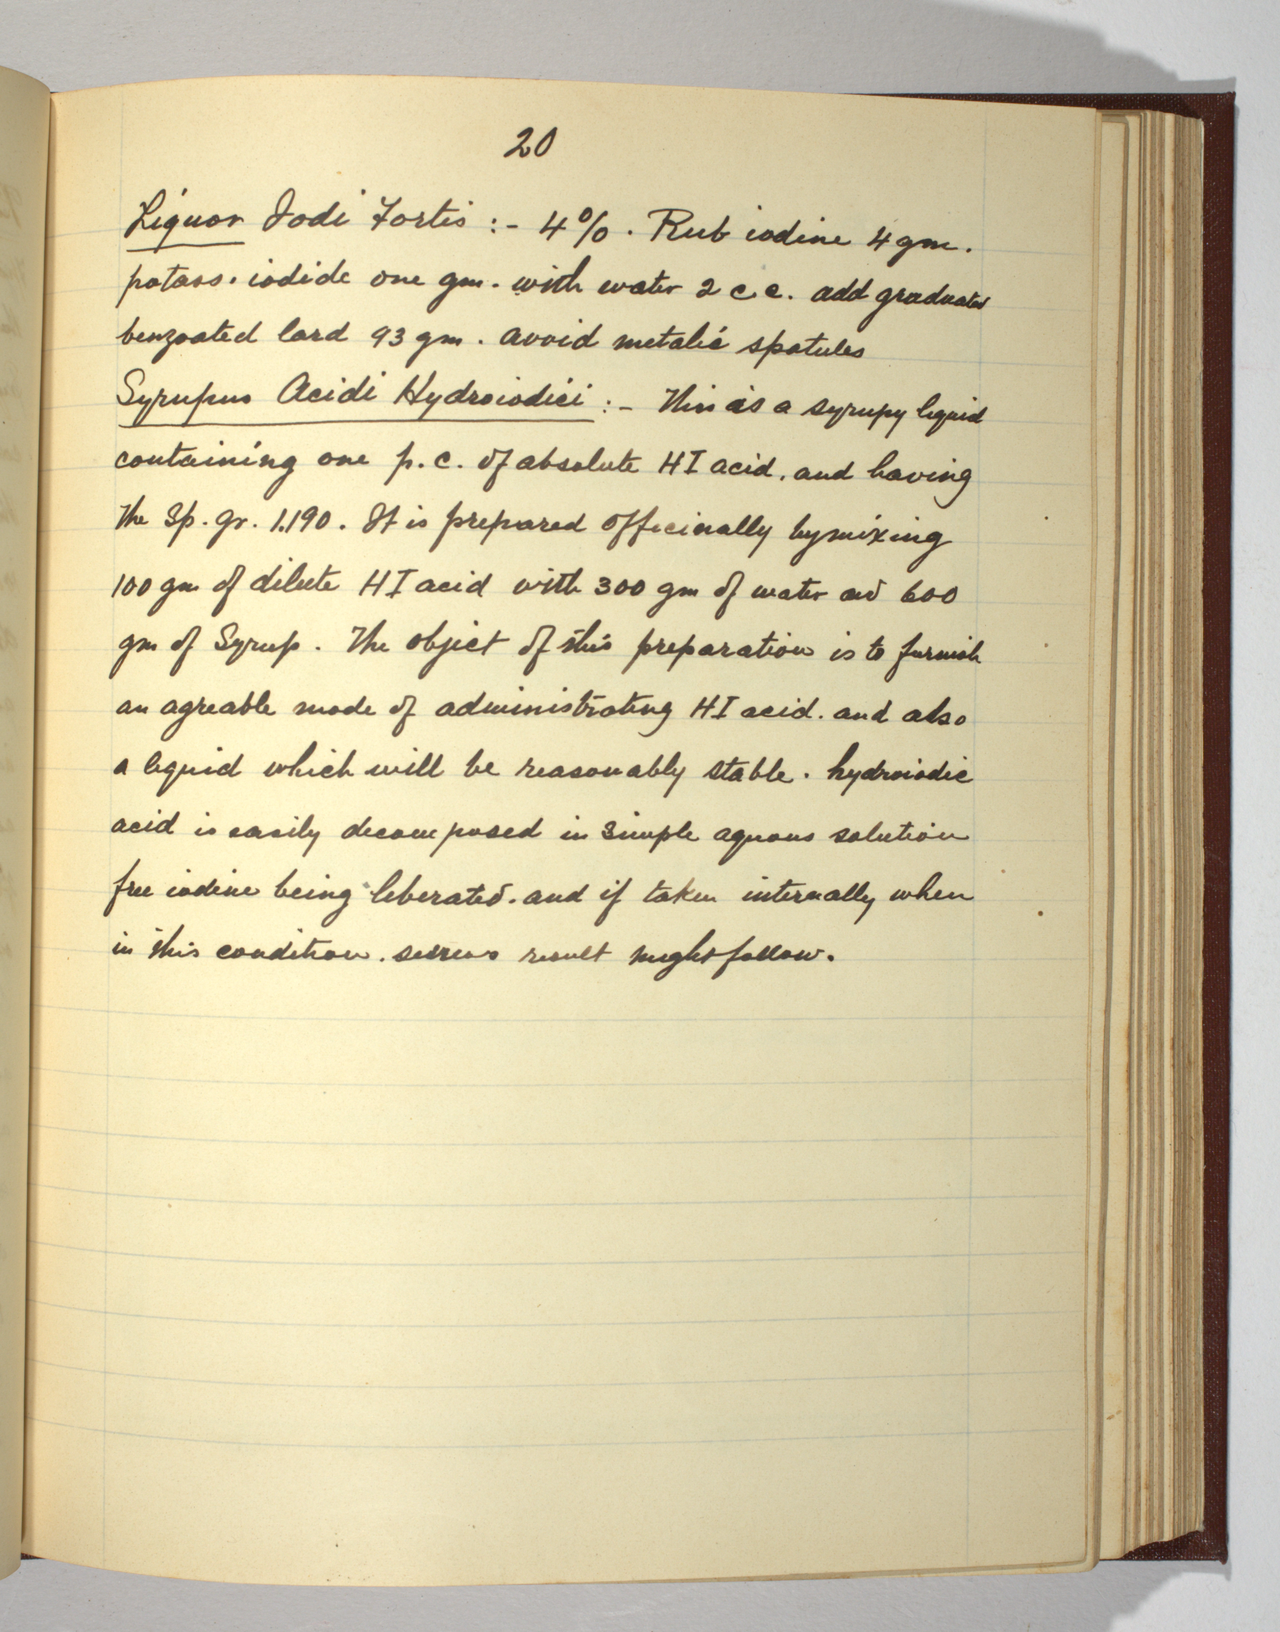 20
Liquor Iodi Fortis :- 4%. Rub iodine 4 gm.
potass. iodide one gm. with water 2 c.c. add graduates
benzoated lard 93 gm. avoid metalic spatules
Syrupus Acidi Hydroiodici :- This is a syrupy liquid
containing one p.c. of absolute HI acid. and having
the sp. gr. 1.190. It is prepared officinally by mixing
100 gm of dilute HI acid with 300 gm of water and 600
gm of Syrup. The object of this preparation is to furnish
an agreable mode of administrating HI acid. and also
a liquid which will be reasonably stable. hydroiodic
acid is easily decomposed in simple aquous solution
free iodine being liberated. and if taken internally when
in this condition. serious result might follow.